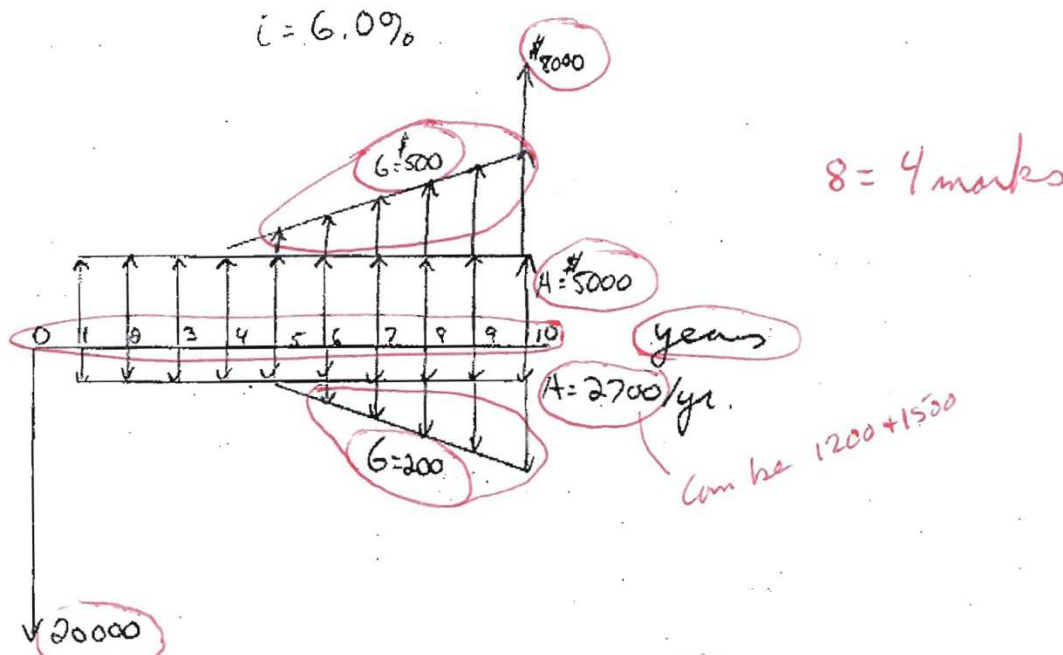 i = 6.0%
$8000
G=$500
8 = 4 marks
A=$5000
0 1 2 3 4 5 6 7 8 9 10 years
A=2700/yr.
G=200
Can be 1200+1500
20000